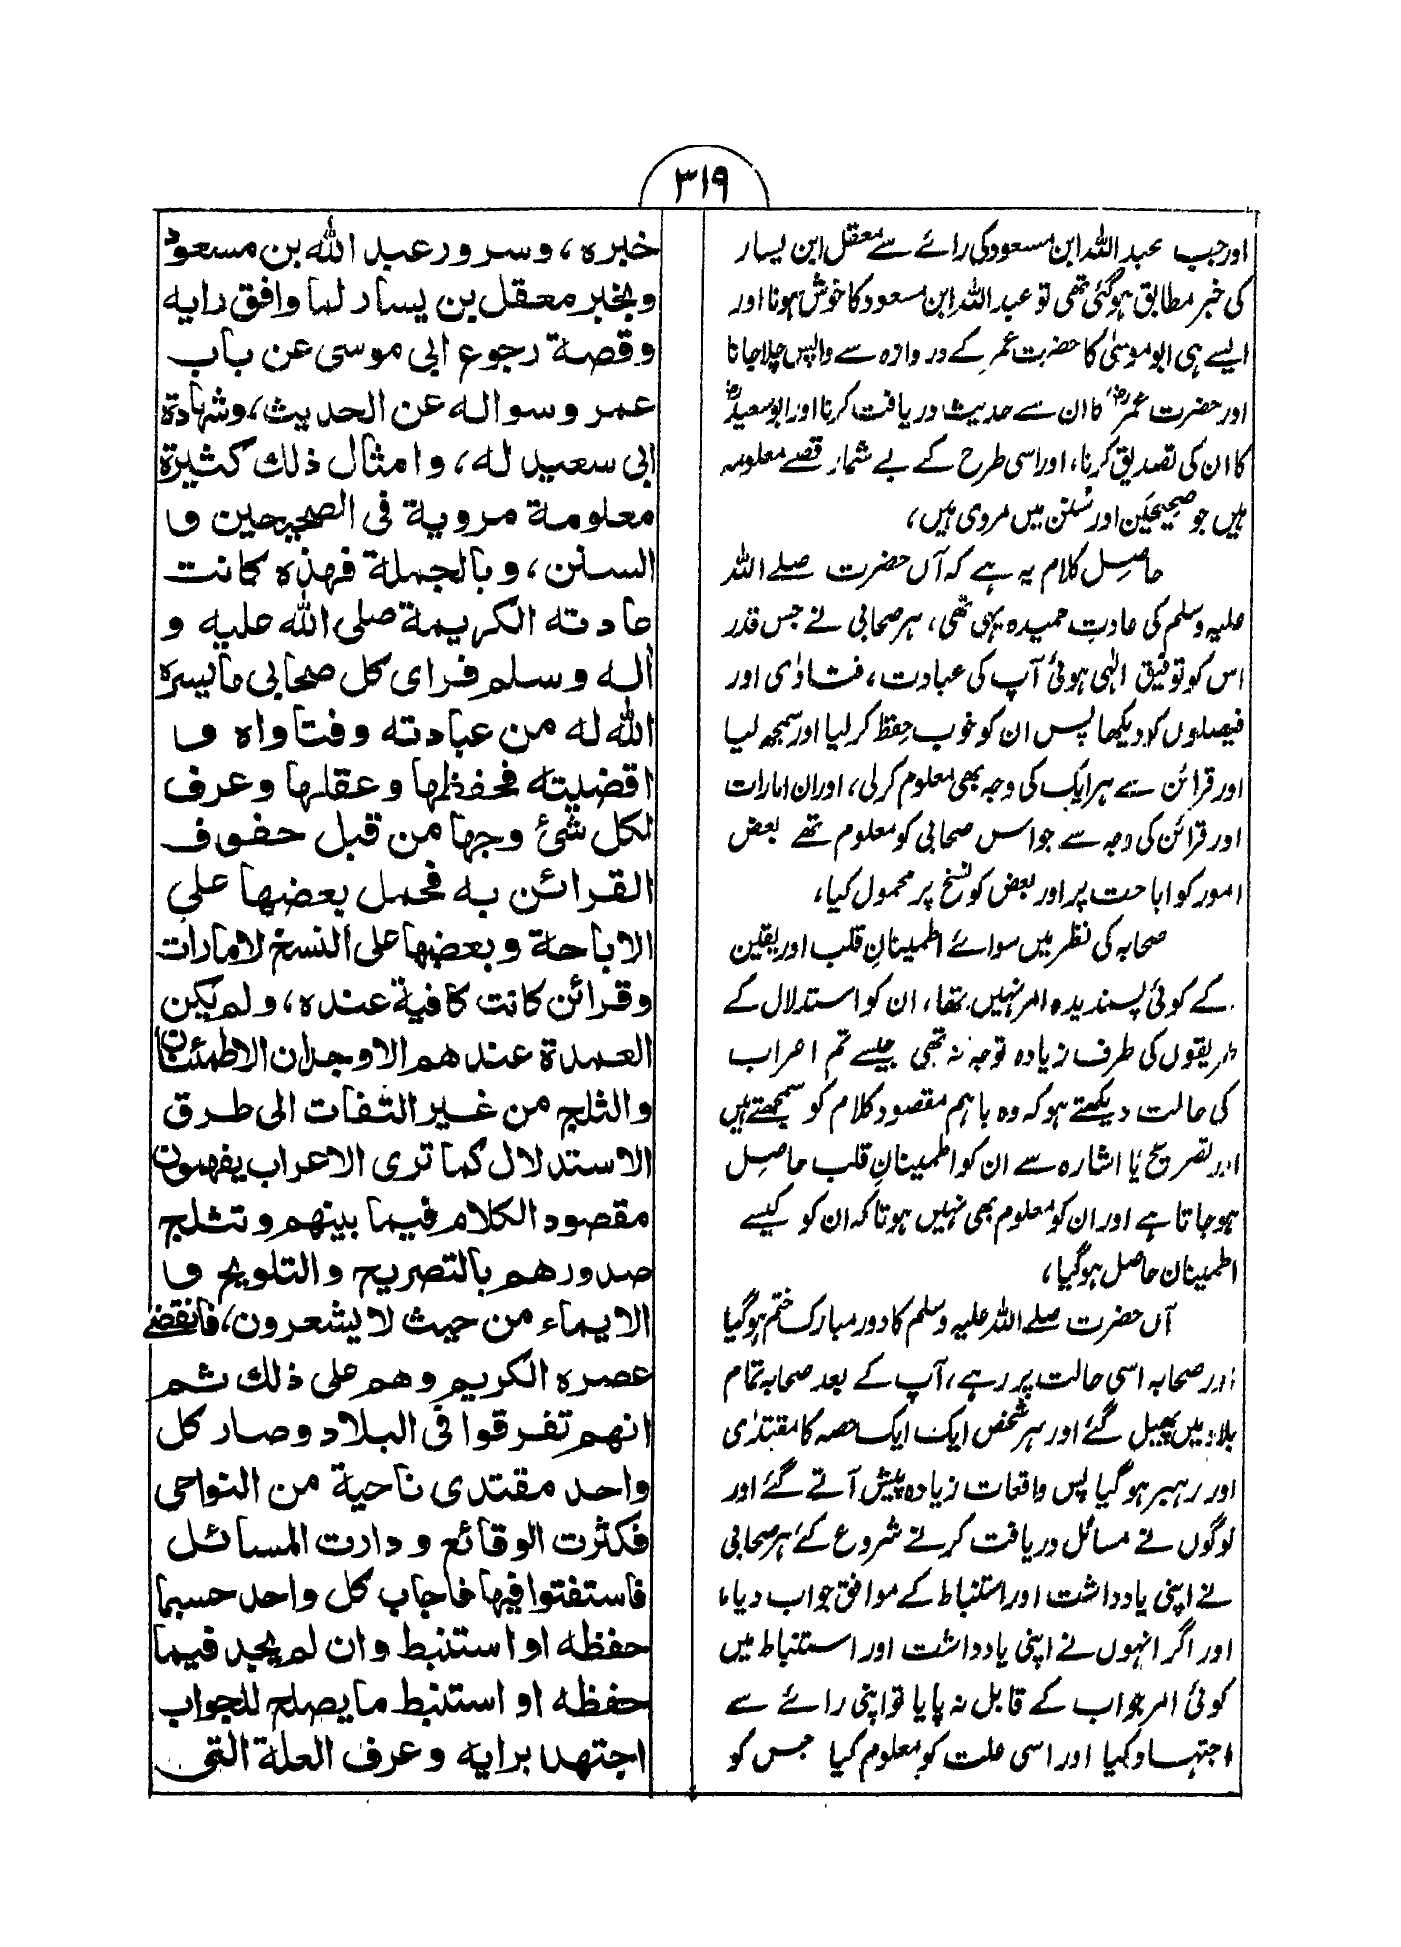 ۳۱۹
اور جب عبد اللہ ابن مسعود کی رائے سے معقل ابن یسار
کی خبر مطابق ہو گئی تھی تو عبد اللہ ابن مسعود کا خوش ہونا اور
ایسے ہی ابو موسیٰ کا حضرت عمر کے دروازہ سے واپس چلا جانا
اور حضرت عمرؓ کا ان سے حدیث دریافت کرنا اور ابو سعیدؓ
کا ان کی تصدیق کرنا، اور اسی طرح کے بے شمار قصے معلومہ
ہیں جو صحیحین اور سنن میں مروی ہیں،
حاصل کلام یہ ہے کہ آں حضرت صلے اللہ
علیہ وسلم کی عادتِ حمیدہ یہی تھی، ہر صحابی نے جس قدر
اس کو توفیق الٰہی ہوئی آپ کی عبادت، فتاوٰی اور
فیصلوں کو دیکھا پس ان کو خوب حفظ کر لیا اور سمجھ لیا
اور قرائن سے ہر ایک کی وجہ بھی معلوم کر لی، اور ان امارات
اور قرائن کی وجہ سے جو اس صحابی کو معلوم تھے بعض
امور کو اباحت پر اور بعض کو نسخ پر محمول کیا،
صحابہ کی نظر میں سوائے اطمینانِ قلب اور یقین
کے کوئی پسندیدہ امر نہیں تھا، ان کو استدلال کے
طریقوں کی طرف زیادہ توجہ نہ تھی جیسے تم اعراب
کی حالت دیکھتے ہو کہ وہ باہم مقصود کلام کو سمجھتے ہیں
اور تصریح یا اشارہ سے ان کو اطمینانِ قلب حاصل
ہو جاتا ہے اور ان کو معلوم بھی نہیں ہوتا کہ ان کو کیسے
اطمینان حاصل ہو گیا،
آں حضرت صلے اللہ علیہ وسلم کا دور مبارک ختم ہو گیا
اور صحابہ اسی حالت پر رہے، آپ کے بعد صحابہ تمام
بلاد میں پھیل گئے اور ہر شخص ایک ایک حصہ کا مقتدٰی
اور رہبر ہو گیا پس واقعات زیادہ پیش آتے گئے اور
لوگوں نے مسائل دریافت کرنے شروع کئے ہر صحابی
نے اپنی یادداشت اور استنباط کے موافق جواب دیا،
اور اگر انہوں نے اپنی یادداشت اور استنباط میں
کوئی امر جواب کے قابل نہ پایا تو اپنی رائے سے
اجتہاد کیا اور اسی علت کو معلوم کیا جس کو
خبره، وسرور عبد الله بن مسعود
وبخبر معقل بن یسار لما وافق رایه
وقصة رجوع ابی موسی عن باب
عمر وسواله عن الحدیث، وشهادة
ابی سعید له، وامثال ذلك کثیرة
معلومة مرویة فی الصحیحین و
السنن، وبالجملة فهذه کانت
عادته الکریمة صلی الله علیه و
اله وسلم فرای کل صحابی ما یسره
الله له من عبادته وفتاواه و
اقضیته فحفظها وعقلها وعرف
لکل شئ وجها من قبل حفوف
القرائن به فحمل بعضها علی
الاباحة وبعضها علی النسخ لامارات
وقرائن کانت کافیة عنده، ولم یکن
العمدة عندهم الاوجدان الاطمئنان
والثلج من غیر التفات الی طرق
الاستدلال کما تری الاعراب یفهمون
مقصود الکلام فیما بینهم وتثلج
صدورهم بالتصریح والتلویح و
الایماء من حیث لا یشعرون، فانقضی
عصره الکریم وهم علی ذلك ثم
انهم تفرقوا فی البلاد وصار کل
واحد مقتدی ناحیة من النواحی
فکثرت الوقائع ودارت المسائل
فاستفتوا فیها فاجاب کل واحد حسبما
حفظه او استنبط وان لم یجد فیما
حفظه او استنبط ما یصلح للجواب
اجتهد برایه وعرف العلة التی